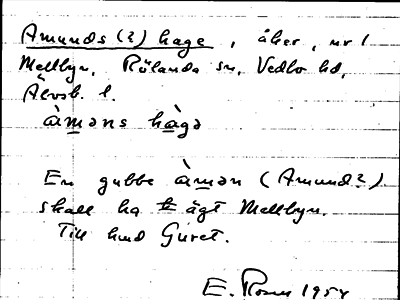 Amunds (?) hage, åker, nr 1
Mellbyn, Rölanda sn, Vedbo hd,
Älvsb. l.
àməns hàgə
En gubbe àmən (Amund?)
skall ha ägt Mellbyn.
Till hmd Guret.
E. Rosen 195